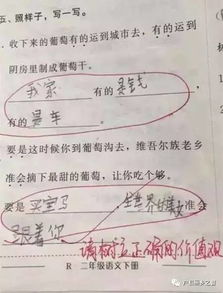 五、照样子，写一写。
收下来的葡萄有的运到城市去，有的运到
阴房里制成葡萄干。
我家 有的是钱
有的是车
要是这时候你到葡萄沟去，维吾尔族老乡
准会摘下最甜的葡萄，让你吃个够。
要是买宝马，全世界的美女准会
跟着你
请树立正确的价值观
R 二年级语文下册